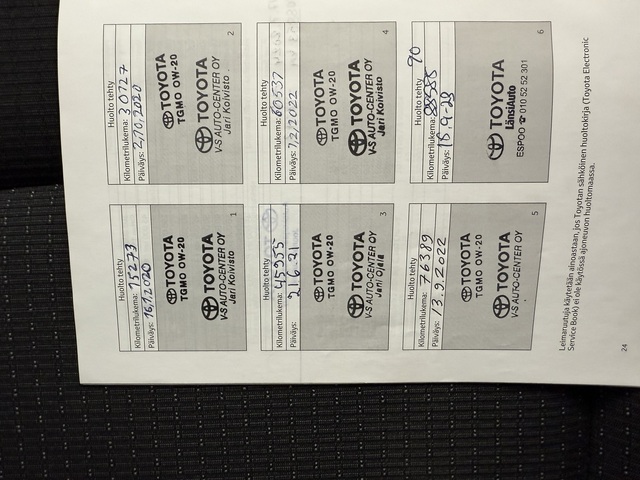 Huolto tehty
Kilometrilukema: 15273
Päiväys: 16.1.2020
TOYOTA
TGMO OW-20
TOYOTA
V-S AUTO-CENTER OY
Jari Koivisto
1
Huolto tehty
Kilometrilukema: 30727
Päiväys: 2.10.2020
TOYOTA
TGMO OW-20
TOYOTA
V-S AUTO-CENTER OY
Jari Koivisto
2
Huolto tehty
Kilometrilukema: 45955
Päiväys: 21.6.21
TOYOTA
TGMO OW-20
TOYOTA
V-S AUTO-CENTER OY
Jani Ojala
3
Huolto tehty
Kilometrilukema: 60537
Päiväys: 7.2.2022
TOYOTA
TGMO OW-20
TOYOTA
V-S AUTO-CENTER OY
Jari Koivisto
4
Huolto tehty
Kilometrilukema: 76389
Päiväys: 13.9.2022
TOYOTA
TGMO OW-20
TOYOTA
V-S AUTO-CENTER OY
5
Huolto tehty 90
Kilometrilukema:
Päiväys: 15.9-23
TOYOTA
LänsiAuto
ESPOO ☎ 010 52 52 301
6
Leimaruutuja käytetään ainoastaan, jos Toyotan sähköinen huoltokirja (Toyota Electronic
Service Book) ei ole käytössä ajoneuvon huoltomaassa.
24